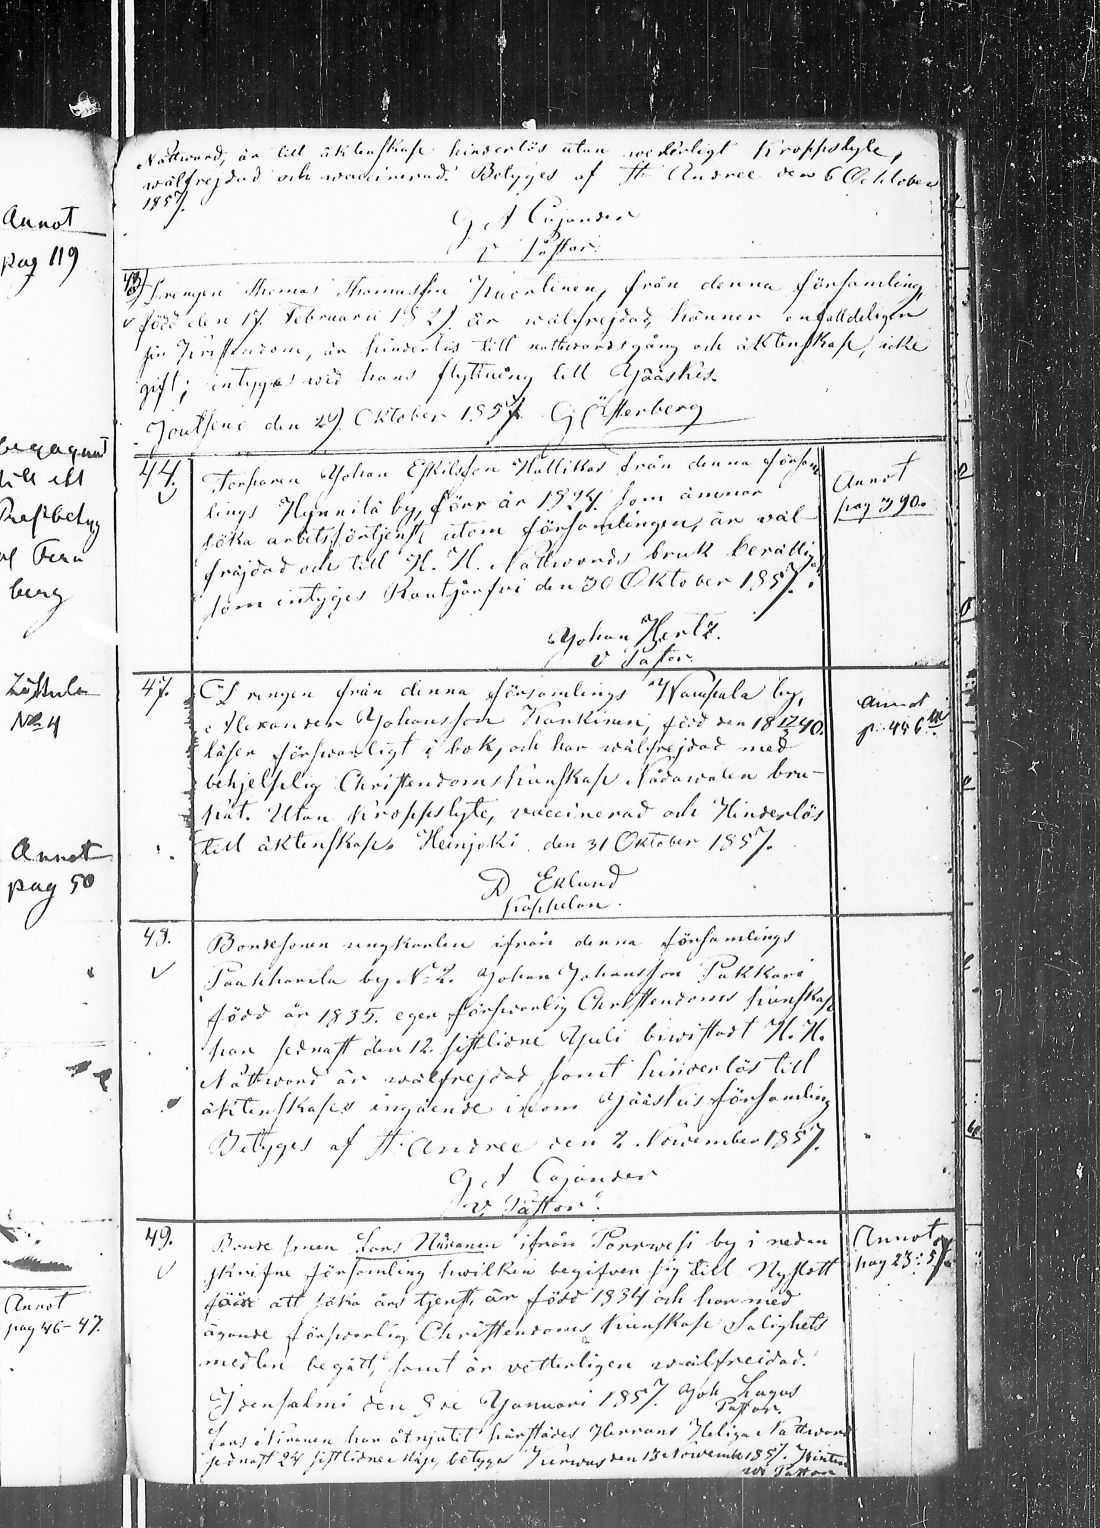 Annot
pag 119
Zöstula
No 4
Annot
pag 50
Annot
pag 46-47.
Nattward, är till äktenskap hinderlös utan wederligt Kroppslyte,
wälfrejdad och vaccinerad. Betyges af St Andree den 6 October
1857.
G A Cajander
v Pastor.
Drengen Thomas Thomasson Kuorlinen, från denna församling,
född den 17 Februarii 182 är wälfrejdad, känner enfalldeligen
sin Kristendom, är hinderlös till nattwardsgång och äktenskap, icke
gift; intygas wid hans flyttning till Jääskis.
Joutseno den 29 Oktober 1857. G Österberg
44.
Torparen Johan Eskilsson Hallikas från denna försam
lings Hynnilä by, förr år 1824 som ämnar
söka arbetsförtjenst utom församlingen, är väl-
fräjdad och till H. H. Nattwards bruk berättigad
som intyges Rautjärfvi den 30 Oktober 1857.
Johan Hertz.
v Pastor
Annot
pag 390.
47.
Drengen från denna församlings Wampala by,
Alexander Johansson Kankinen, född den 18 12/3 40.
läser försvarligt i bok, och har wälfrejdad med
behjelplig Christendoms Kunskap Nådawalen bru-
kat. Utan Kroppslyte, vaccinerad och Hinderlös
till äktenskap. Heinjoki den 31 Oktober 1857.
D Eklund
Kappelan.
Annot
p. 446
48.
Bondesonen ungkarlen ifrån denna församlings
by No 2. Johan Johansson Pakkari
född år 1835. eger försvarlig Christendoms kunskap
har sednast den 12 sistlidne Juli biwistadt H. H.
Nattward är wälfrejdad samt hinderlös till
äktenskaps ingående inom Jääskis församling
Betyges af St Andree den 2 November 1857.
G A Cajander
v. Pastor.
49.
Bonde sonen Lars Nissonen ifrån Porrwesi by i nedan
skrifne församling hwilken begifver sig till Nyslott
att söka års tjenst, är född 1834 och har med
ägande försvarlig Christendoms kunskap Salighets
medlen begått, samt är vetterligen wälfreidad.
Idensalmi den 8de Januari 1857. Joh Lagus
Pastor.
Lars Nironen har åtnjutit härstädes Herrans Heliga Nattward
sednast 24 sistlidne Maji, betygar den 13 November 1857.
Pastor
Annot
pag 23: